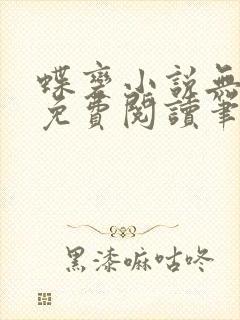 蝶变小说無
免費閱讀筆
黑漆嘛咕咚